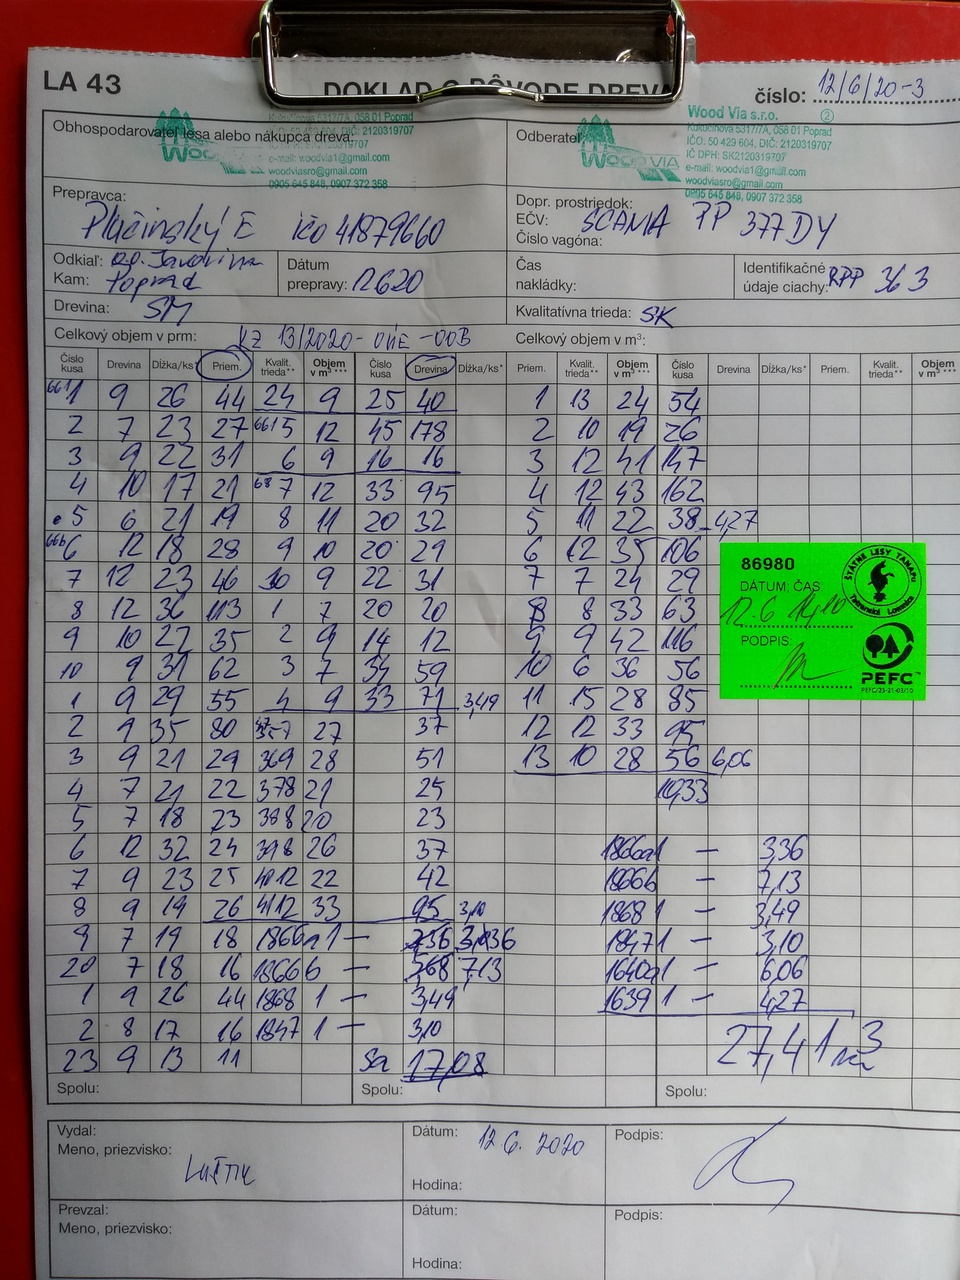 LA 43
DOKLAD O PÔVODE DREVA
číslo: 12/6/20-3
Obhospodarovateľ lesa alebo nákupca dreva:
058 01 Poprad
DIČ: 2120319707
e-mail: woodvia1@gmail.com
woodviasro@gmail.com
0905 645 848, 0907 372 358
Odberateľ
WOOD VIA
Wood Via s.r.o. 2
Kukučínova 5317/7A, 058 01 Poprad
IČO: 50 429 604, DIČ: 2120319707
IČ DPH: SK2120319707
e-mail: woodvia1@gmail.com
woodviasro@gmail.com
0905 645 848, 0907 372 358
Prepravca:
Plučinský E IČO 41879660
Dopr. prostriedok:
EČV: SCANIA PP 377DY
Číslo vagóna:
Odkiaľ: Javorina
Kam: Poprad
Dátum
prepravy: 12620
Čas
nakládky:
Identifikačné
údaje ciachy: RPP 363
Drevina: SM
Kvalitatívna trieda: SK
Celkový objem v prm: KZ 13/2020-
Celkový objem v m³:
Číslo kusa Drevina Dĺžka/ks* Priem. Kvalit. trieda** Objem v m³*** Číslo kusa Drevina Dĺžka/ks* Priem. Kvalit. trieda** Objem v m³*** Číslo kusa Drevina Dĺžka/ks* Priem. Kvalit. trieda** Objem v m³***
1 9 26 44 24 9 25 40 1 13 24 54
2 7 23 27 5 12 45 178 2 10 19 26
3 9 22 31 6 9 16 16 3 12 41 147
4 10 17 21 7 12 33 95 4 12 43 162
5 6 21 19 8 11 20 32 5 11 22 38 4,27
6 12 18 28 9 10 20 29 6 12 35 106
7 12 23 46 10 9 22 31 7 7 24 29
8 12 36 113 1 7 20 20 8 8 33 63
9 10 27 35 2 9 14 12 9 9 42 116
10 9 31 62 3 7 34 59 10 6 36 56
1 9 29 55 4 9 33 71 3,49 11 15 28 85
2 9 35 80 7 27 37 12 12 33 95
3 9 21 29 369 28 51 13 10 28 56 6,06
4 7 21 22 378 21 25 10,33
5 7 18 23 388 20 23
6 12 32 24 398 26 37 1866a1 – 3,36
7 9 23 25 4012 22 42 1866b – 7,13
8 9 19 26 4112 33 95 3,10 1868 1 – 3,49
9 7 19 18 1866a1 – 1847 1 – 3,10
20 7 18 16 1866b – 7,13 1640a1 – 6,06
1 9 26 44 1868 1 – 3,49 1639 1 – 4,27
2 8 17 16 1847 1 – 3,10
23 9 13 11 Sa 17,08 27,41 m3
Spolu: Spolu: Spolu:
86980
DÁTUM, ČAS
12.6 14,10
PODPIS
ŠTÁTNE LESY TANAPu
Tatranská Lomnica
PEFC
PEFC/23-21-03/10
Vydal:
Meno, priezvisko:
Dátum: 12.6.2020
Hodina:
Podpis:
Prevzal:
Meno, priezvisko:
Dátum:
Hodina:
Podpis: